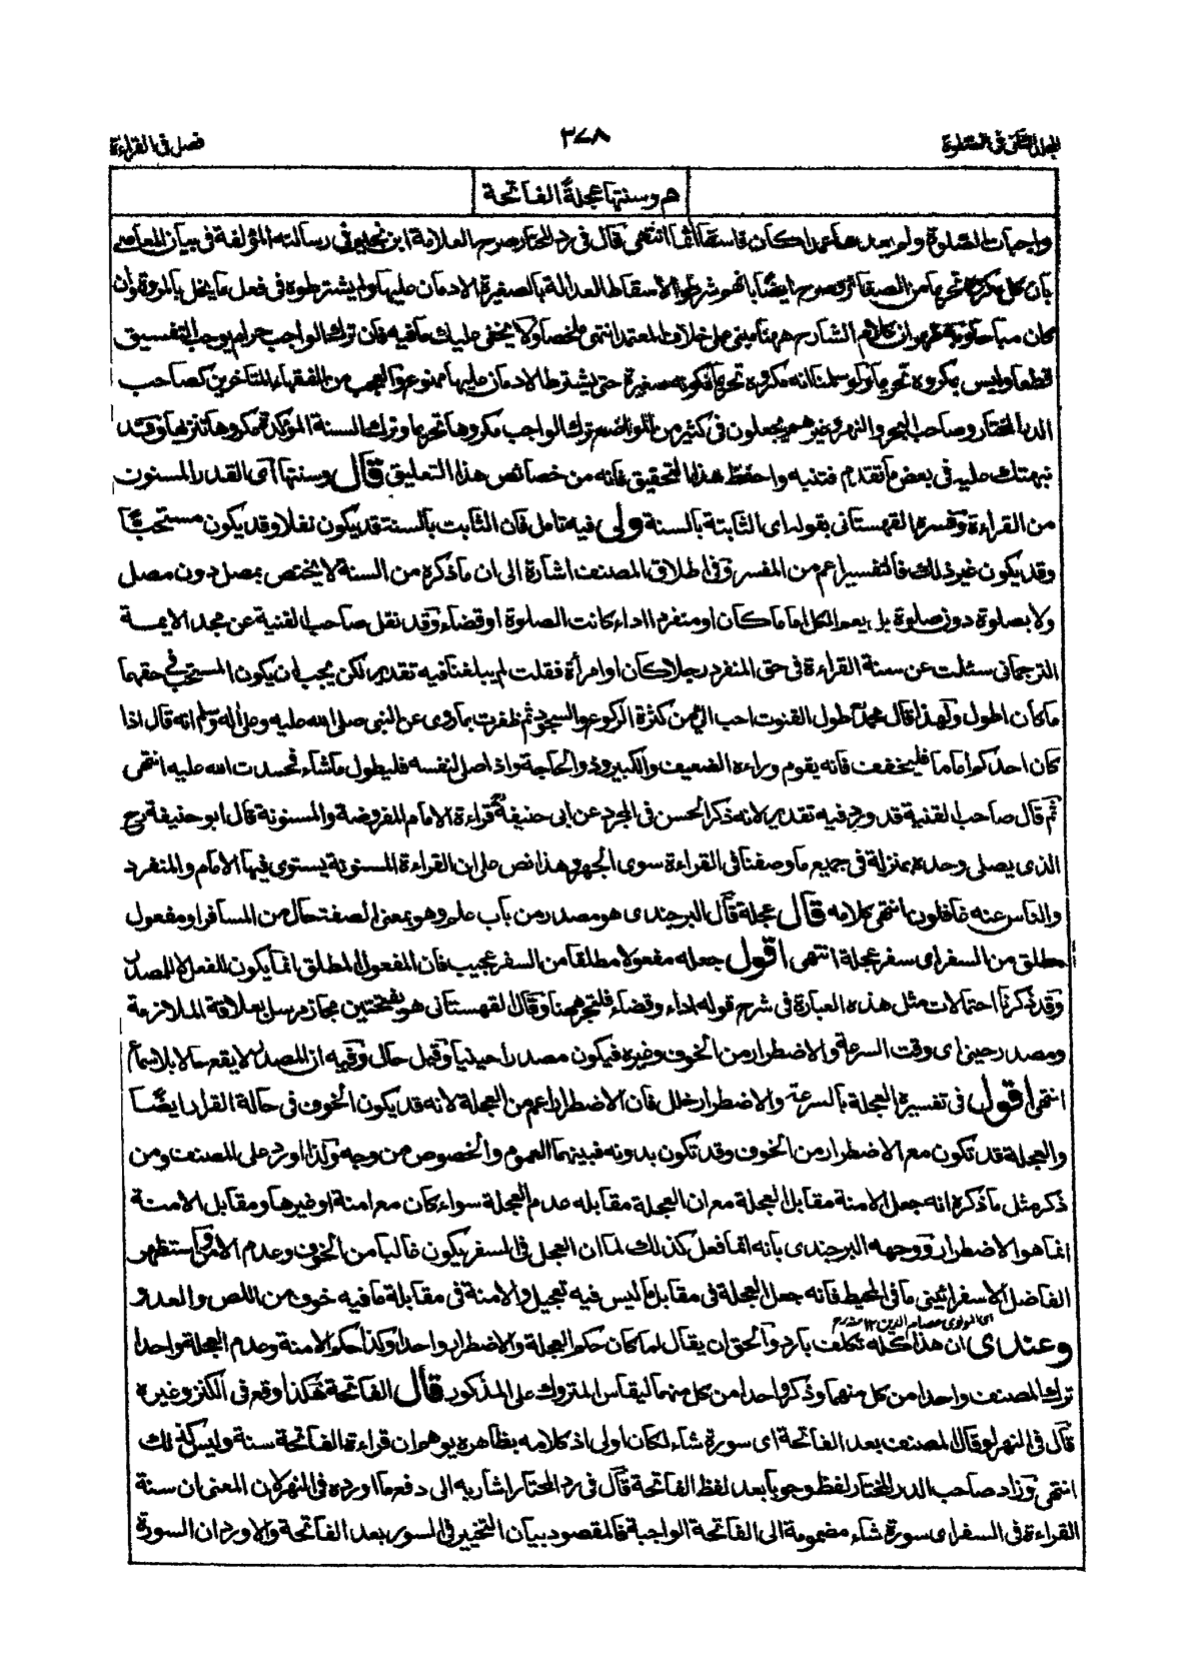 المجلد الثانى فى الصلوة
٣٧٨
فصل فى القراءة
هم وسنتها عجلةً الفاتحة
واجبات الصلوة ولو بعد ها عمدا كان فاسقا آثما انتهى قال فى رد المحتار صرح العلامة ابن نجيم فى رسالته المؤلفة فى بيان المعاصى
بان كل مكروه تحريما من الصغائر وصرح ايضًا بانهم شرطوا لاسقاط العدالة بالصغيرة الادمان عليها ولم يشترطوه فى فعل ما يخل بالمروة وان
كان مباحا وبه ظهر ان كلام الشارح ههنا مبنى على خلاف المعتمد انتهى ملخصا ولا يخفى عليك ما فيه فان ترك الواجب حرام يوجب التفسيق
قطعا وليس بمكروه تحريما ولو سلمنا انه مكروه تحريما فكونه صغيرة حتى يشترط الادمان عليها ممنوع والعجب من الفقهاء المتاخرين كصاحب
الدر المختار وصاحب البحر والنهر وغيرهم يجعلون فى كثير من المواضع ترك الواجب مكروها تحريما وترك السنة المؤكدة مكروها تنزيها وقد
نبهتك عليه فى بعض ما تقدم فتنبه واحفظ هذا التحقيق فانه من خصائص هذا التعليق قال وسنتها اى القدر المسنون
من القراءة وفسره القهستانى بقوله اى الثابتة بالسنة ولى فيه تامل فان الثابت بالسنة قد يكون نفلا وقد يكون مستحبًا
وقد يكون غير ذلك فالتفسير اعم من المفسر وفى اطلاق المصنف اشارة الى ان ما ذكره من السنة لا يختص بمصل دون مصل
ولا بصلوة دون صلوة بل يعم الكل اماما كان او منفردا اداء كانت الصلوة او قضاء وقد نقل صاحب القنية عن مجد الايمة
الترجمانى سئلت عن سنة القراءة فى حق المنفرد رجلا كان او امرأة فقلت لم يبلغنا فيه تقدير لكن يجب ان يكون المستحب فى حقهما
ما كان اطول ولهذا قال محمد طول القنوت احب الىّ من كثرة الركوع والسجود ثم ظفرت بما روى عن النبى صلى الله عليه وعلى اله وسلم انه قال اذا
كان احدكم اماما فليخفف فانه يقوم وراءه الضعيف والكبير وذو الحاجة واذا صلى لنفسه فليطول ما شاء فحمدت الله عليه انتهى
ثم قال صاحب القنية قد ورد فيه تقدير لانه ذكر الحسن فى المجرد عن ابى حنيفة قراءة الامام المفروضة والمسنونة قال ابو حنيفة رح
الذى يصلى وحده بمنزلة فى جميع ما وصفنا فى القراءة سوى الجهر وهذا نص على ان القراءة المسنونة يستوى فيها الامام والمنفرد
والناس عنه غافلون انتهى كلامه قال عجلة قال البرجندى هو مصدر من باب علم وهو بمعنى الصفت حال من المسافر او مفعول
مطلق من السفر اى سفر عجلة انتهى اقول جعله مفعولا مطلقا من السفر عجيب فان المفعول المطلق انما يكون للفعل لا للمصدر
وقد ذكرنا احتمالات مثل هذه العبارة فى شرح قوله اداء وقضاء فلترجع هنا وقال القهستانى هو بفتحتين مجاز مرسل بعلاقة الملازمة
ومصدر حينى اى وقت السرعة والاضطرار من الخوف وغيره فيكون مصدرا حينيا وقيل حال وفيه ان المصدر لا يقع حالا بلا سماع
انتهى اقول فى تفسيره العجلة بالسرعة والاضطرار خلل فان الاضطرار اعم من العجلة لانه قد يكون الخوف فى حالة القرار ايضًا
والعجلة قد تكون مع الاضطرار من الخوف وقد تكون بدونه فبينهما العموم والخصوص من وجه ولذا اورد على المصنف ومن
ذكر مثل ما ذكره انه جعل الامنة مقابل العجلة مع ان العجلة مقابله عدم العجلة سواء كان مع امنة او غيرها ومقابل الامنة
انما هو الاضطرار ووجهه البرجندى بانه انما فعل كذلك لما ان العجل فى السفر يكون غالبا من الخوف وعدم الامن واستظهر
الفاضل الاسفرائينى ما فى المحيط فانه جعل العجلة فى مقابل ما ليس فيه تعجيل والامنة فى مقابلة ما فيه خوف من اللص والعدو
اى المولوى عصام الدين ١٢ منه رح
وعندى ان هذا كله تكلف بارد والحق ان يقال لما كان حكم العجلة والاضطرار واحدا وكذا حكم الامنة وعدم العجلة واحدا
ترك المصنف واحدا من كل منهما وذكر واحدا من كل منهما ليقاس المتروك على المذكور قال الفاتحة هكذا وقع فى الكنز وغيره
قال فى النهر لو قال المصنف بعد الفاتحة اى سورة شاء لكان اولى اذ كلامه بظاهره يوهم ان قراءة الفاتحة سنة وليس كذلك
انتهى وزاد صاحب الدر المختار لفظ وجوبا بعد لفظ الفاتحة قال فى رد المحتار اشار به الى دفع ما اورده فى النهر لان المعنى ان سنة
القراءة فى السفر اى سورة شاء مضمومة الى الفاتحة الواجبة فالمقصود بيان التخيير فى السور بعد الفاتحة والا ورد ان السورة